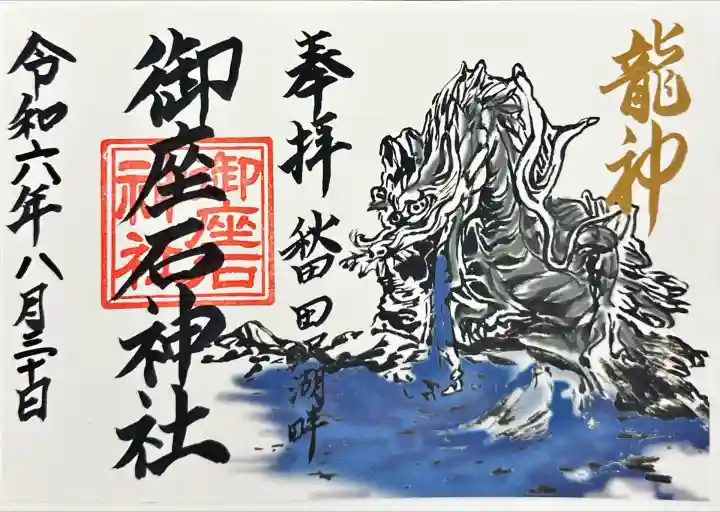 龍神
奉拝 秋田田沢湖畔
御座石神社
御座石
神社
令和六年八月三十日